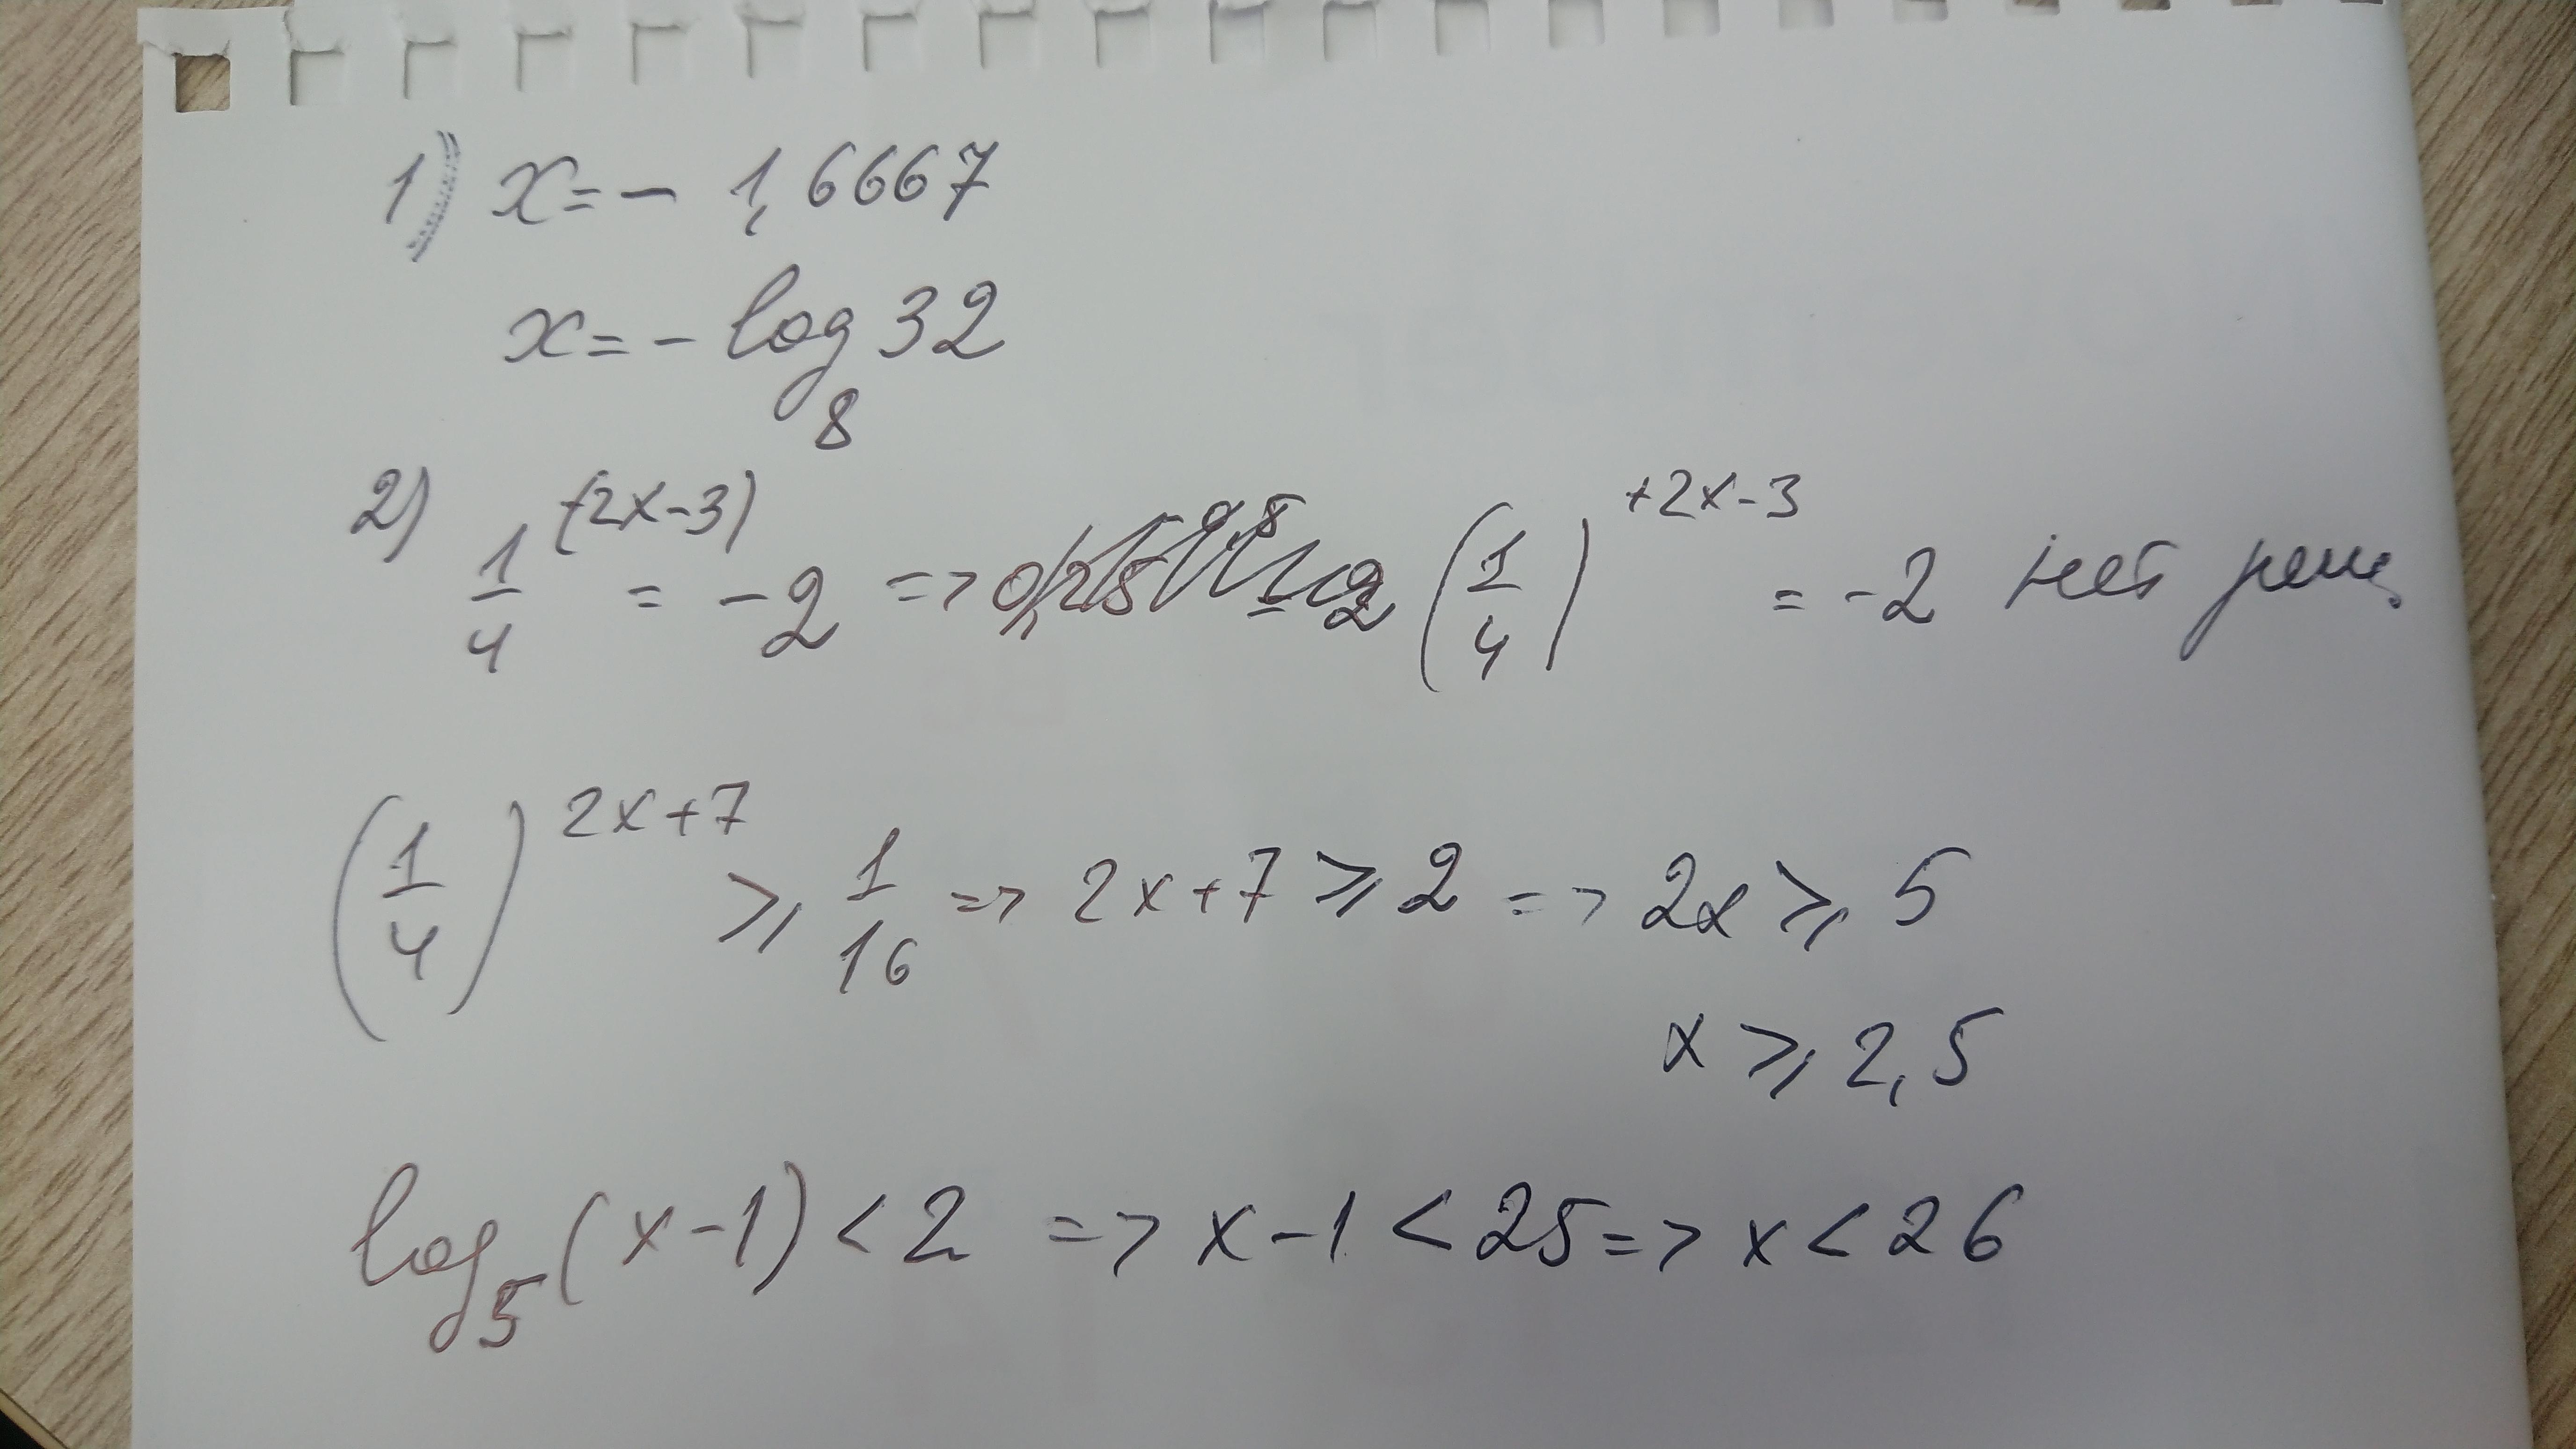 1) x = - 1,6667
x = - log₈ 32
2) 1/4^(2x-3) = -2 => (1/4)^+2x-3 = -2 нет реш
(1/4)^2x+7 ⩾ 1/16 => 2x+7 ⩾ 2 => 2x ⩾ 5
x ⩾ 2,5
log₅(x-1) < 2 => x-1 < 25 => x < 26